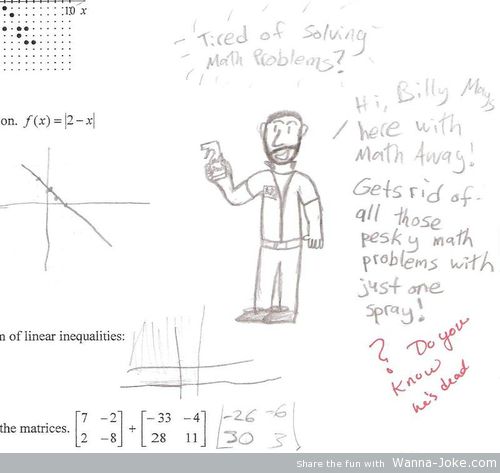 10 x
Tired of Solving
Math Problems?
Hi, Billy Mays
here with
Math Away!
Gets rid of
all those
pesky math
problems with
just one
spray!
on. f(x) = |2 − x|
? Do you
know
he's dead
n of linear inequalities:
the matrices. [7 −2 2 −8] + [−33 −4 28 11] [-26 -6 30 3]
share the fun with Wanna-Joke.com